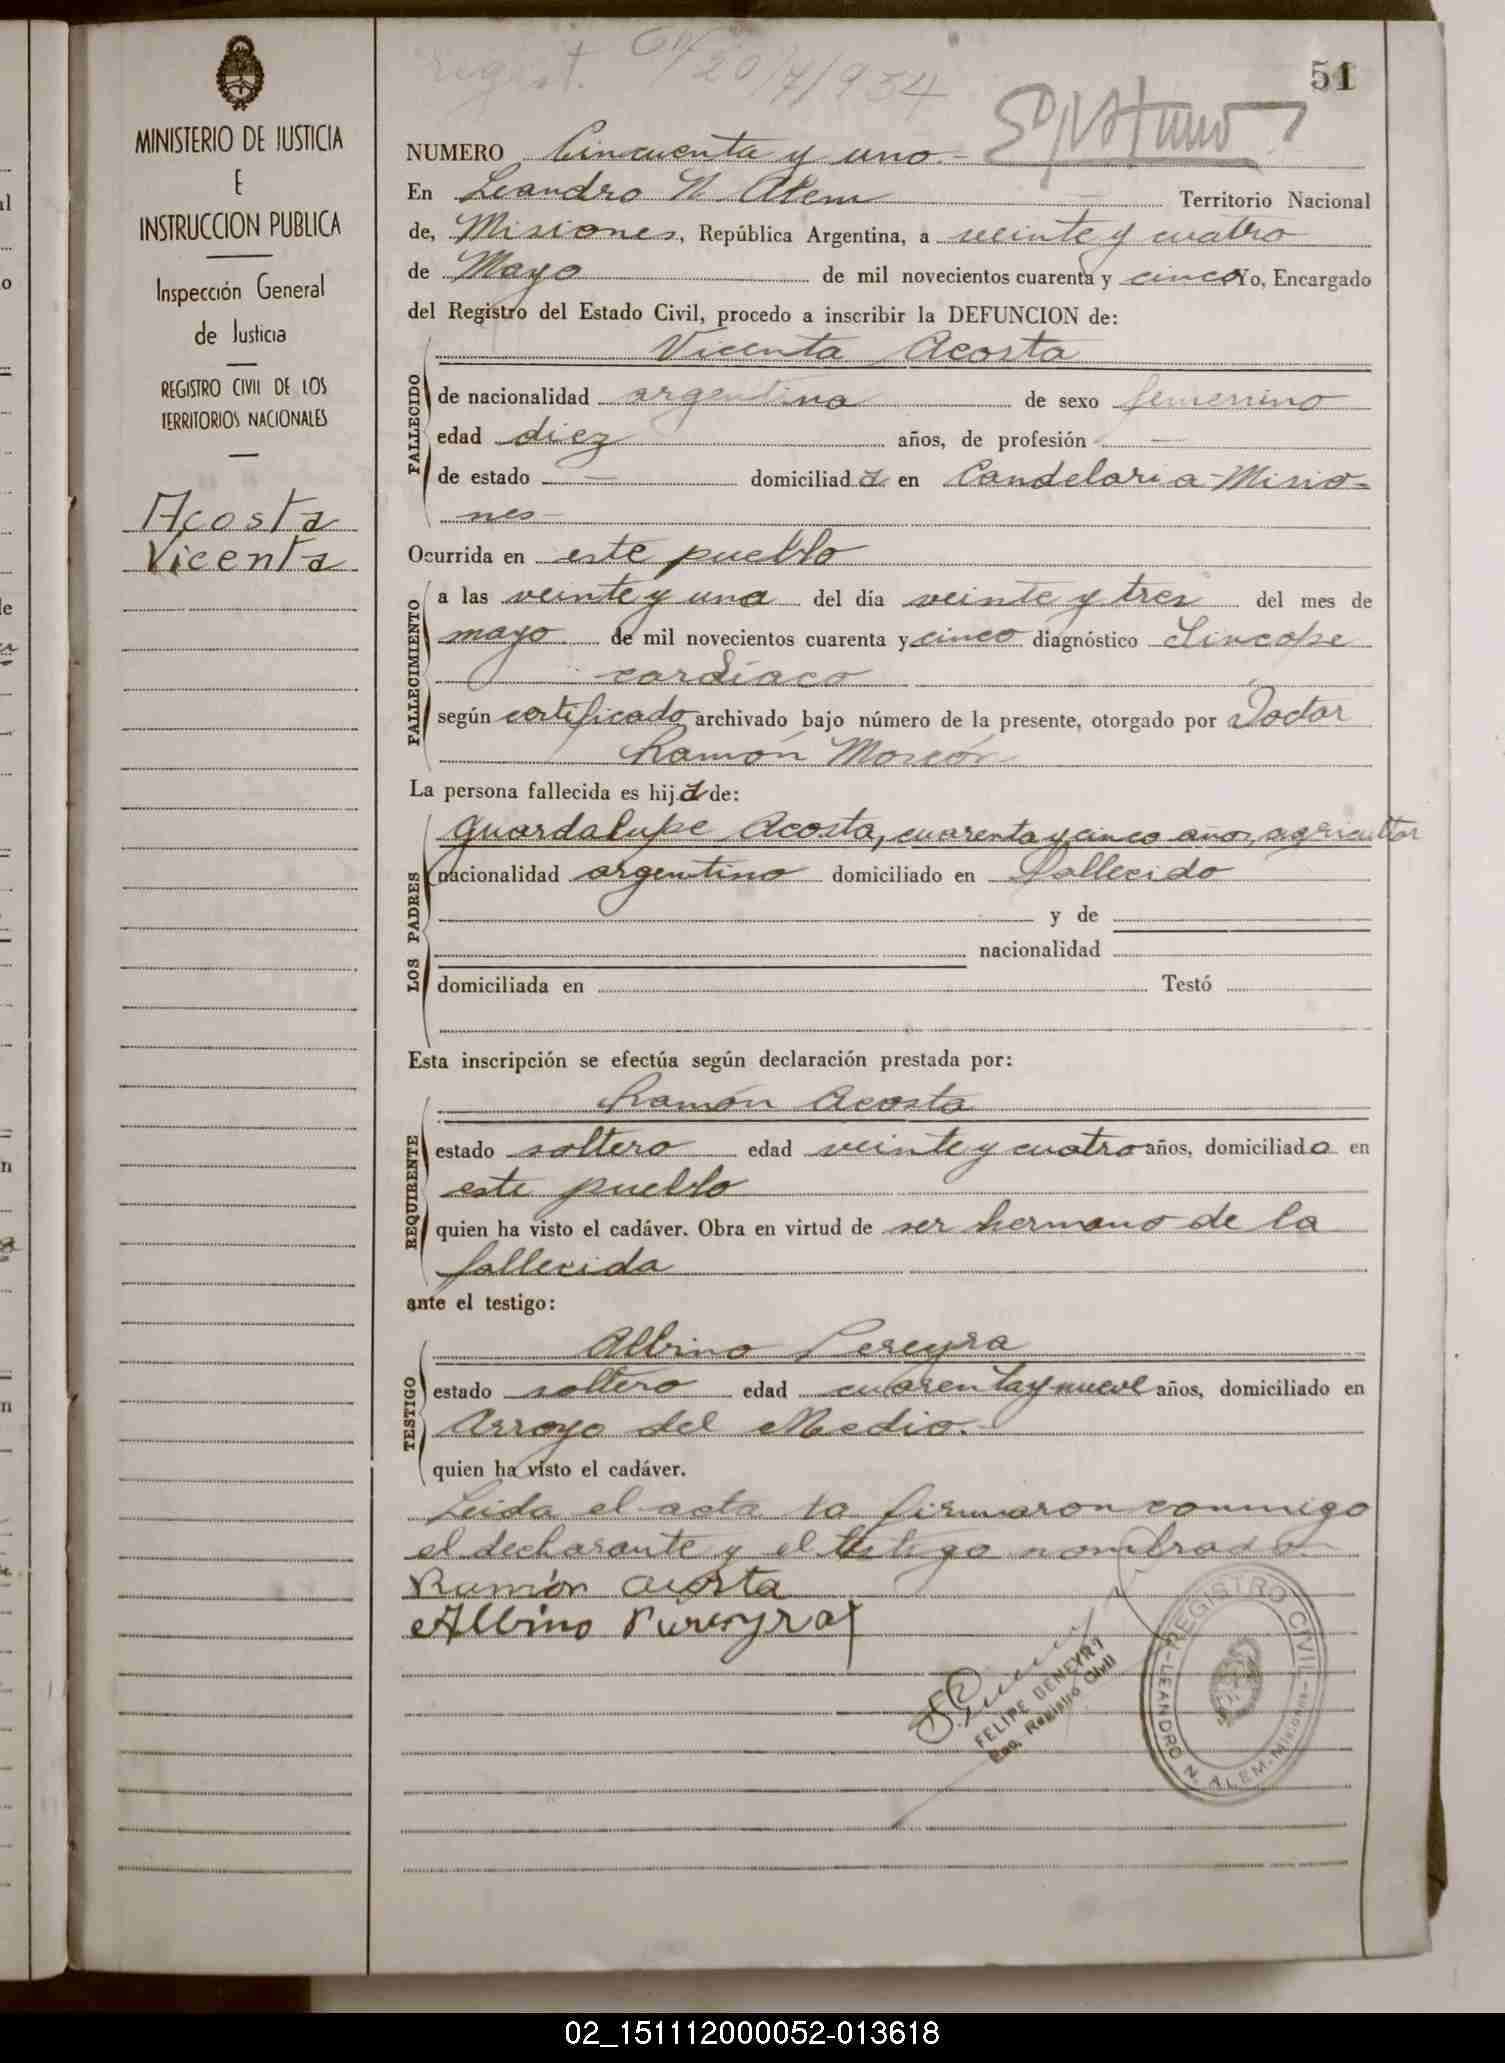 51
regist. 20/7/934
MINISTERIO DE JUSTICIA
E
INSTRUCCION PUBLICA
Inspección General
de Justicia
REGISTRO CIVIL DE LOS
TERRITORIOS NACIONALES
Acosta
Vicenta
NUMERO Cincuenta y uno.-
En Leandro N. Alem Territorio Nacional
de, Misiones, República Argentina, a veinte y cuatro
de Mayo de mil novecientos cuarenta y cinco Yo, Encargado
del Registro del Estado Civil, procedo a inscribir la DEFUNCION de:
Vicenta Acosta
FALLECIDO
de nacionalidad argentina de sexo femenino
edad diez años, de profesión —
de estado — domiciliada en Candelaria-Misio-
nes-
Ocurrida en este pueblo
FALLECIMIENTO
a las veinte y una del día veinte y tres del mes de
mayo de mil novecientos cuarenta y cinco diagnóstico Sincope
cardíaco
según certificado archivado bajo número de la presente, otorgado por Doctor
Ramón
La persona fallecida es hija de:
LOS PADRES
Guardalupe Acosta, cuarenta y cinco años, agricultor
nacionalidad argentino domiciliado en fallecido
y de
nacionalidad
domiciliada en Testó
Esta inscripción se efectúa según declaración prestada por:
Ramón Acosta
REQUIRENTE
estado soltero edad veinte y cuatro años, domiciliado en
este pueblo
quien ha visto el cadáver. Obra en virtud de ser hermano de la
fallecida
ante el testigo:
Albino Pereyra
TESTIGO
estado soltero edad cuarenta y nueve años, domiciliado en
Arroyo del Medio.-
quien ha visto el cadáver.
Leida el acta la firmaron conmigo
el declarante y el testigo nombrado
Ramón Acosta
Albino Pereyra
FELIPE DENEYRI
Enc. Registro Civil
REGISTRO CIVIL
LEANDRO N. ALEM-Misiones
02_151112000052-013618